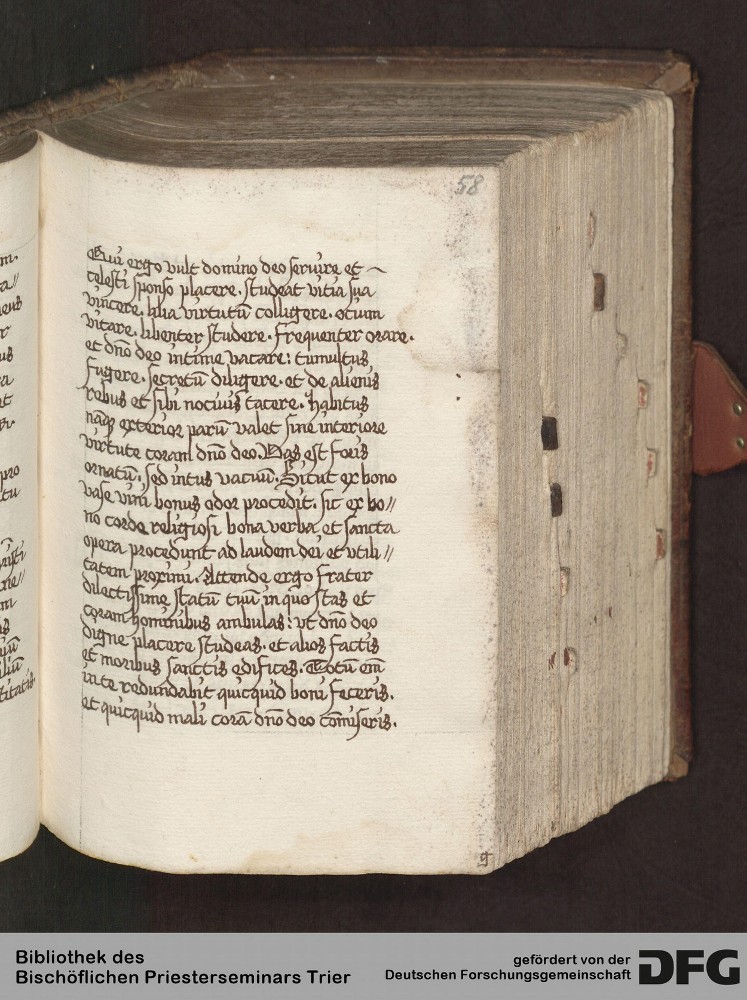 58
Qui ergo vult domino deo seruire et ~
celesti sponso placere. studeat vitia sua
vincere. lilia virtutū colligere. otium
vitare. libenter studere. frequenter orare.
et dn̄o deo intime vacare: tumultus
fugere. secretū diligere. et de alienis
rebus et sibi nociuis tacere. Habitus
nāq; exterior parū valet sine interiore
virtute coram dn̄o deo. Vas est foris
ornatū. sed intus vacuū. Sicut ex bono
vase vini bonus odor procedit. sic ex bo//
no corde religiosi bona verba et sancta
opera procedunt ad laudem dei et vtili//
tatem proximi. Attende ergo frater
dilectissime statū tuū in quo stas et
coram hominibus ambulas: vt dn̄o deo
digne placere studeas. et alios factis
et moribus sanctis edifices. Totū em̄
in te redundabit quicquid boni feceris.
et quicquid mali corā dn̄o deo cōmiseris.
Bibliothek des
Bischöflichen Priesterseminars Trier
gefördert von der
Deutschen Forschungsgemeinschaft
DFG